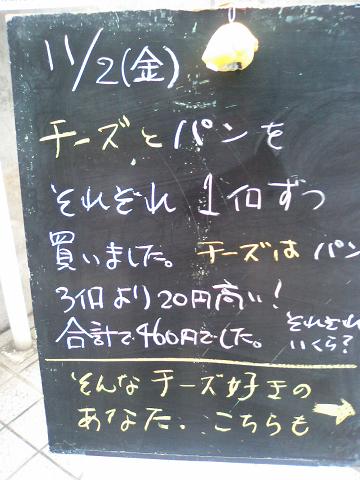 11/2(金)
チーズとパンを
それぞれ1個ずつ
買いました。チーズはパン
3個より20円高い!
合計で460円でした。それぞれ
いくら?
そんなチーズ好きの
あなた、こちらも→